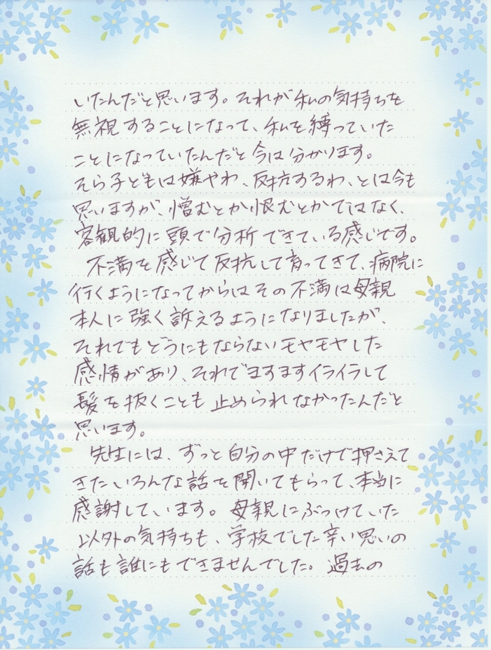 いたんだと思います。それが私の気持ちを
無視することになって、私を縛っていた
ことになっていたんだと今は分かります。
そら子どもは嫌やわ、反抗するわ、とは今も
思いますが、憎むとか恨むとかではなく、
客観的に頭で分析できている感じです。
不満を感じて反抗して育ってきて、病院に
行くようになってからはその不満は母親
本人に強く訴えるようになりましたが、
それでもどうにもならないモヤモヤした
感情があり、それでますますイライラして
髪を抜くことも止められなかったんだと
思います。
先生には、ずっと自分の中だけで押さえて
きたいろんな話を聞いてもらって、本当に
感謝しています。母親にぶつけていた
以外の気持ちも、学校でした辛い思いの
話も誰にもできませんでした。過去の